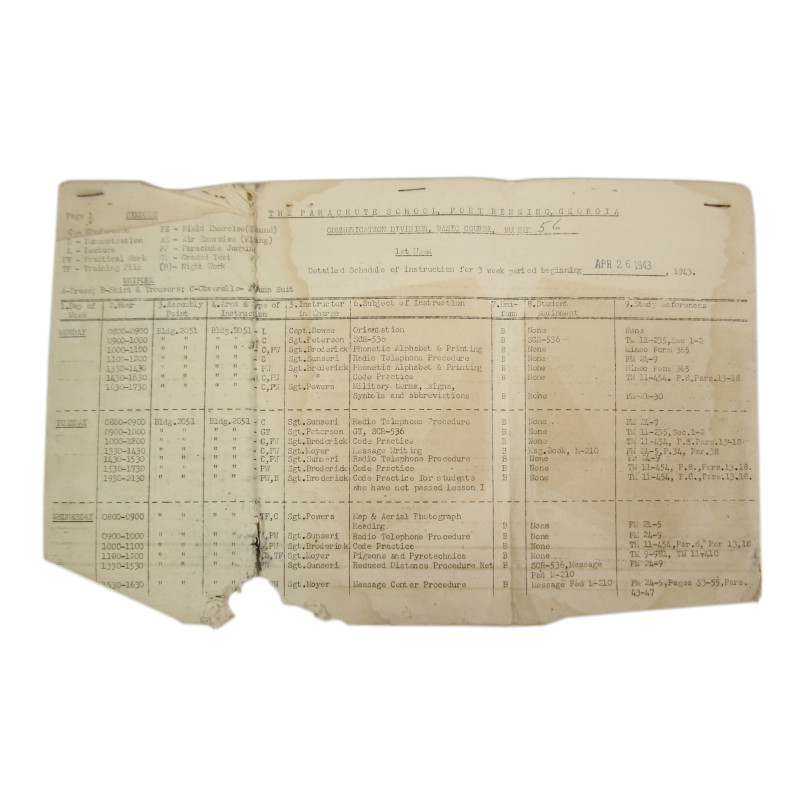 THE PARACHUTE SCHOOL, FORT BENNING, GEORGIA
Page 1 SYMBOLS
COMMUNICATION DIVISION, BASIC COURSE, 56
C - Conference FE - Field Exercise(Ground)
D - Demonstration AE - Air Exercise (Flying)
L - Lecture PJ - Parachute Jumping
1st Week
PW - Practical Work GT - Graded Test
TF - Training Film (N)- Night Work
Detailed Schedule of Instruction for 3 week period beginning APR 26 1943, 1943.
UNIFORM
A-Dress; B-Shirt & Trousers; C-Coveralls- Jump Suit
1.Day of Week 2.Hour 3.Assembly Point 4.Area & Instruction 5.Instructor in Charge 6.Subject of Instruction 7.Uniform 8.Student Equipment 9.Study References
MONDAY 0800-0900 Bldg.2051 Bldg.2051 - L Capt.Downs Orientation B None None
0900-1000 " " " " - C Sgt.Peterson SCR-536 B SCR-536 TM 11-235,Sec 1-2
1000-1100 " " " " - C,PW Sgt.Broderick Phonetic Alphabet & Printing B None Mimeo Form 365
1100-1200 " " " " - C Sgt.Sunseri Radio Telephone Procedure B None FM 24-9
1330-1430 " " " " - PW Sgt.Broderick Phonetic Alphabet & Printing B None Mimeo Form 365
1430-1630 " " " " - C,PW " " Code Practice B None TM 11-454, P.8,Pars.13-18
1630-1730 " " " " - C,PW Sgt.Powers Military terms, signs,
Symbols and abbreviations B None FM-21-30
TUESDAY 0800-0900 Bldg.2051 Bldg.2051 - C Sgt.Sunseri Radio Telephone Procedure B None FM 24-9
0900-1000 " " " " - GT Sgt.Peterson GT, SCR-536 B None TM 11-235,Sec.1-2
1000-1200 " " " " - C,PW Sgt.Broderick Code Practice B None TM 11-454, P.8.Pars.13-18
1330-1430 " " " " - C,PW Sgt.Moyer Message Writing B Msg.Book, M-210 FM 24-5, P.34, Par.38
1430-1530 " " " " - C,PW Sgt.Sunseri Radio Telephone Procedure B None FM 24-9
1530-1730 " " " " - PW Sgt.Broderick Code Practice B None TM 11-454, P.8., Pars.13.18.
1930-2130 " " " " - PW,N Sgt.Broderick Code Practice for students B None TM 11-454, P.8., Pars.13.18.
who have not passed Lesson I
WEDNESDAY 0800-0900 " " " " - TF,C Sgt.Powers Map & Aerial Photograph
Reading B None FM 21-5
0900-1000 " " " " PW Sgt.Sunseri Radio Telephone Procedure B None FM 24-9
1000-1100 " " " " PW Sgt.Broderick Code Practice B None TM 11-454,Par.8, Par 13,18
1100-1200 " " " " TF Sgt.Powers Pigeons and Pyrotechnics B None TM 9-981, TM 11-410
1330-1530 " " " " Sgt.Sunseri Reduced Distance Procedure Net B SCR-536,Message FM 24-9
Pad M-210
1530-1630 " " " " Sgt.Moyer Message Center Procedure B Message Pad M-210 FM 24-5, Pages 53-55, Pars.
43-47